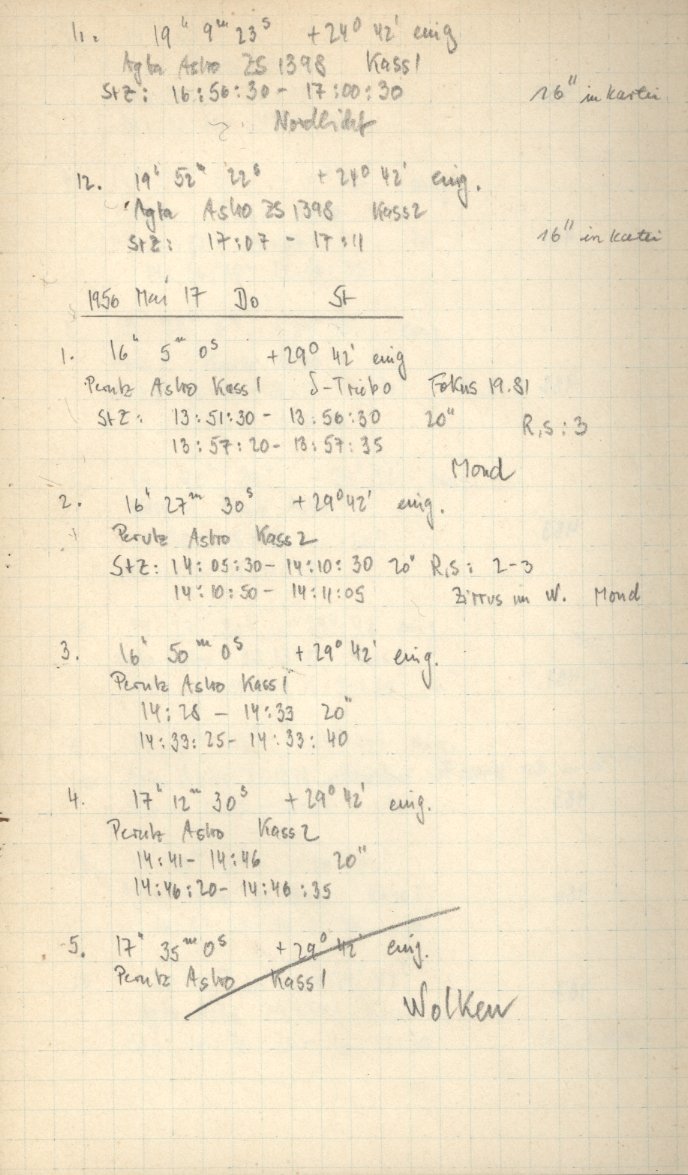 11. 19ʰ 9ᵐ 23ˢ +24⁰ 42' einig
Agfa Astro ZS 1398 Kass1
StZ: 16:56:30 - 17:00:30 16" in Kartei
Nordlicht
12. 19ʰ 52ᵐ 22ˢ +24⁰ 42' einig.
Agfa Astro ZS 1398 Kass2
StZ: 17:07 - 17:11 16" in Kartei
1956 Mai 17 Do St
1. 16ʰ 5ᵐ 0ˢ +29⁰ 42' einig
Perutz Astro Kass1 Fokus 19.81
StZ: 13:51:30 - 13:56:30 20" R,S: 3
13:57:20 - 13:57:35
Mond
2. 16ʰ 27ᵐ 30ˢ +29⁰42' einig.
Perutz Astro Kass2
StZ: 14:05:30 - 14:10:30 20" R,S: 2-3
14:10:50 - 14:11:05 Zirrus im W. Mond
3. 16ʰ 50ᵐ 0ˢ +29⁰ 42' einig.
Perutz Astro Kass1
14:28 - 14:33 20"
14:33:25 - 14:33:40
4. 17ʰ 12ᵐ 30ˢ +29⁰ 42' einig.
Perutz Astro Kass2
14:41 - 14:46 20"
14:46:20 - 14:46:35
5. 17ʰ 35ᵐ 0ˢ +29⁰ 42' einig.
Perutz Astro Kass1
Wolken